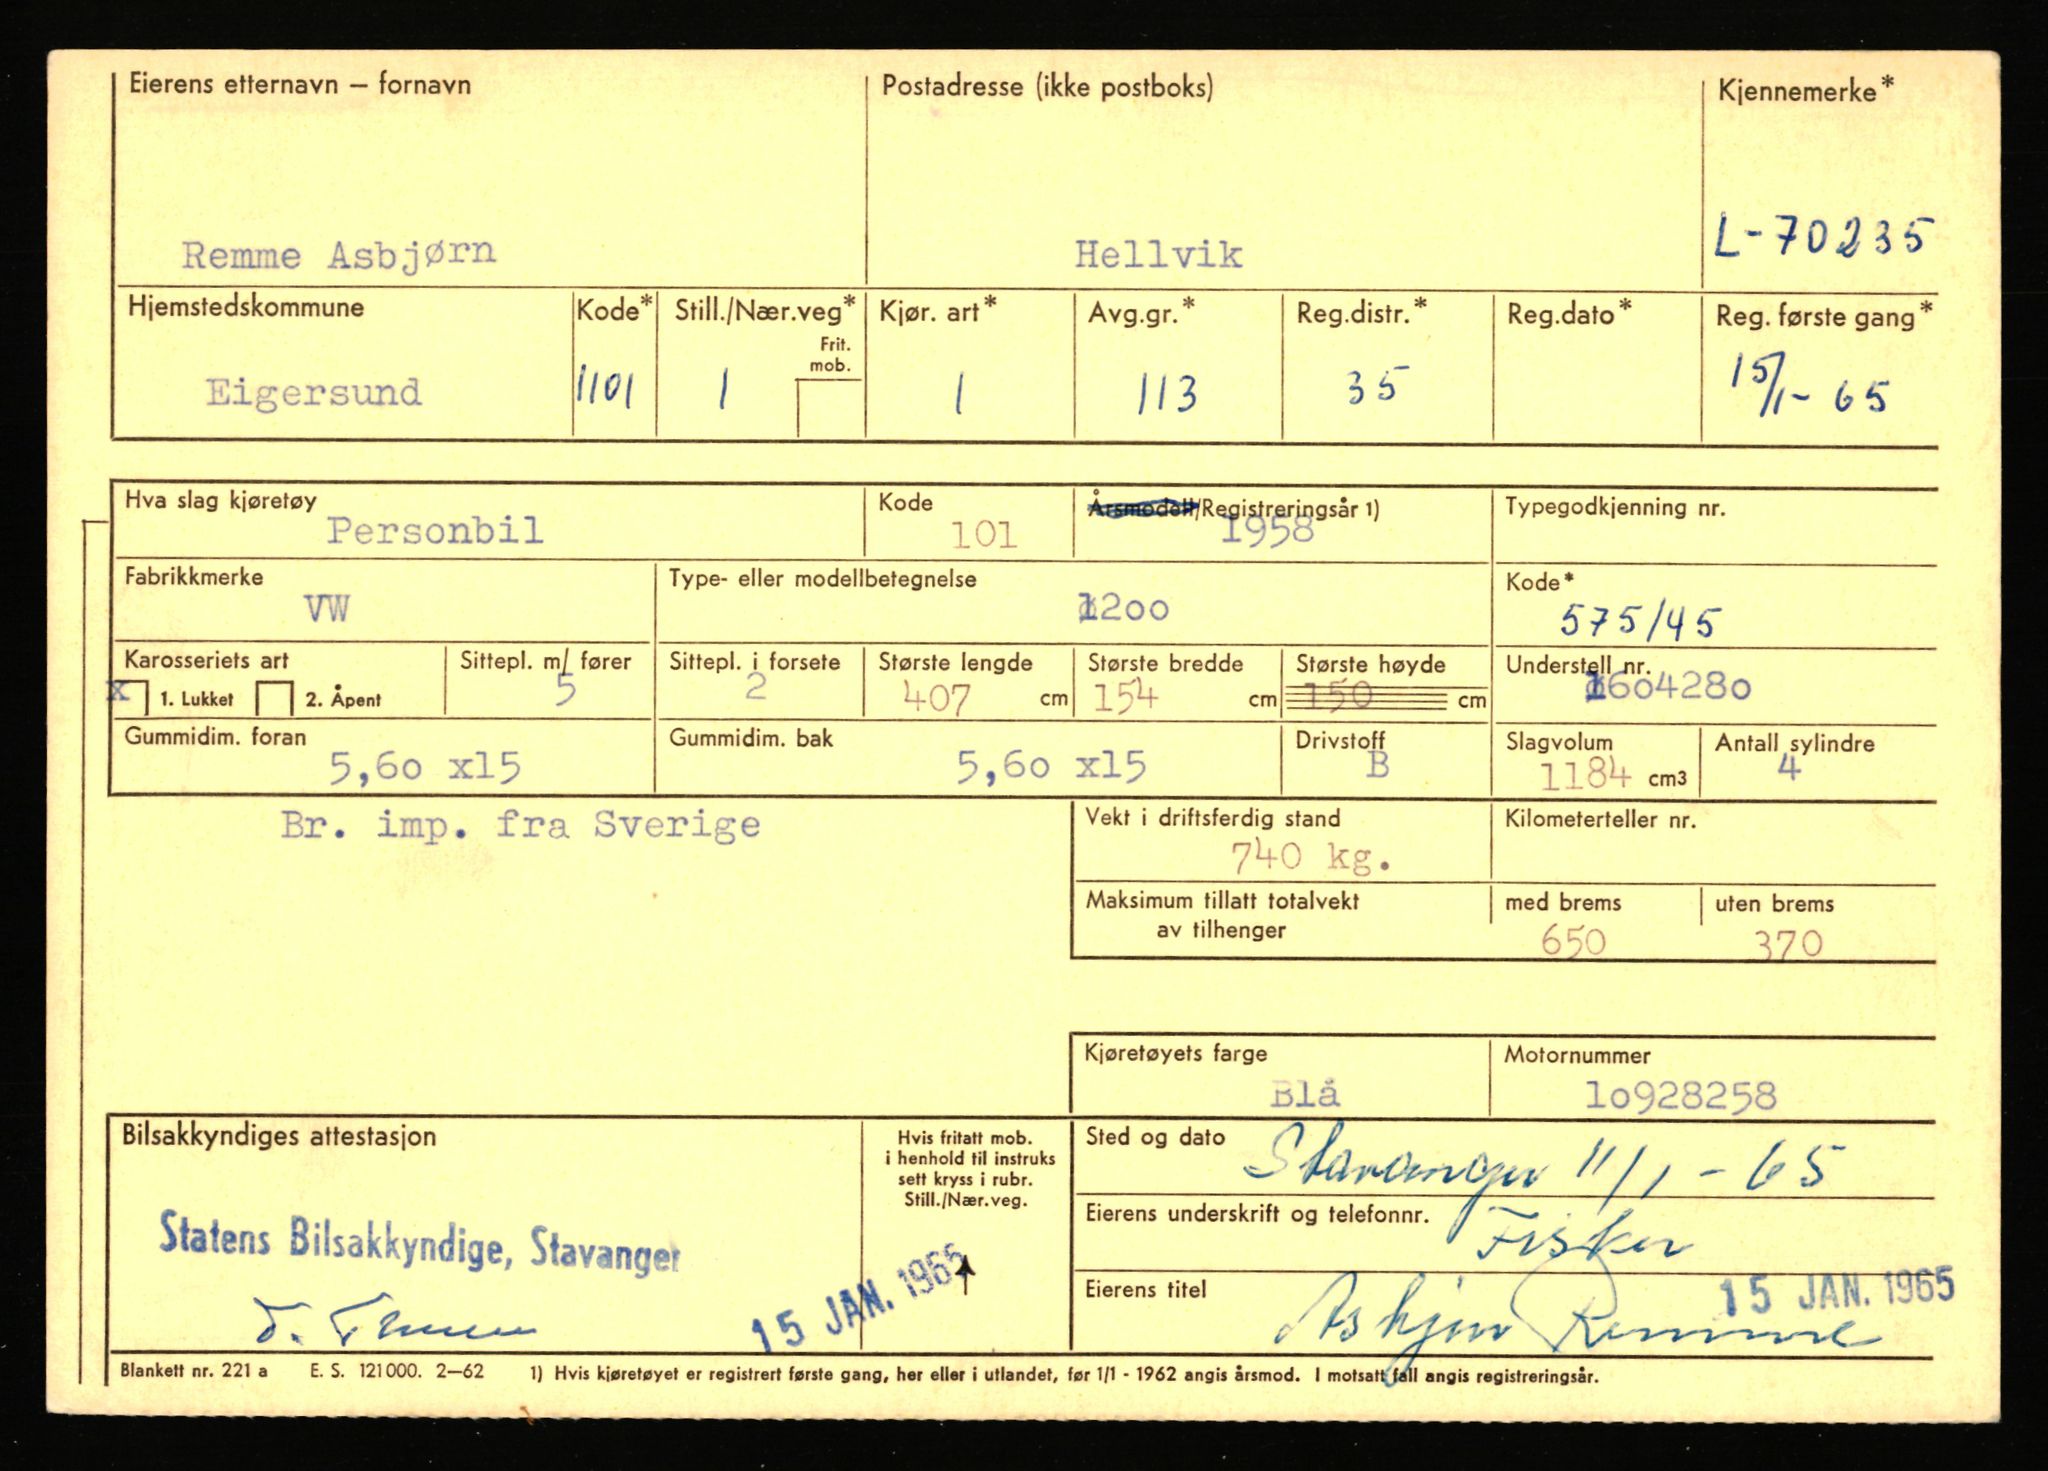 Eierens etternavn – fornavn Postadresse (ikke postboks) Kjennemerke*
Remme Asbjørn Hellvik L-70235
Hjemstedskommune Kode* Still./Nær.veg* Kjør. art* Avg.gr.* Reg.distr.* Reg.dato* Reg. første gang*
Frit.
mob.
Eigersund 1101 1 1 113 35 15/1- 65
Hva slag kjøretøy Kode Årsmodell/Registreringsår 1) Typegodkjenning nr.
Personbil 101 1958
Fabrikkmerke Type- eller modellbetegnelse Kode*
VW 1200 575/45
Karosseriets art Sittepl. m/ fører Sittepl. i forsete Største lengde Største bredde Største høyde Understell nr.
x 1. Lukket 2. Åpent 5 2 407 cm 154 cm 150 cm 1604280
Gummidim. foran Gummidim. bak Drivstoff Slagvolum Antall sylindre
5,60 x15 5,60 x15 B 1184 cm3 4
Br. imp. fra Sverige
Vekt i driftsferdig stand Kilometerteller nr.
740 kg.
Maksimum tillatt totalvekt med brems uten brems
av tilhenger 650 370
Kjøretøyets farge Motornummer
Blå 10928258
Bilsakkyndiges attestasjon
Hvis fritatt mob.
i henhold til instruks
sett kryss i rubr.
Still./Nær.veg.
Sted og dato Stavanger 11/1-65
Statens Bilsakkyndige, Stavanger
15 JAN. 1965
Eierens underskrift og telefonnr.
Fisker
Eierens titel 15 JAN. 1965
Asbjørn Remme
Blankett nr. 221 a E. S. 121000. 2–62 1) Hvis kjøretøyet er registrert første gang, her eller i utlandet, før 1/1 - 1962 angis årsmod. I motsatt fall angis registreringsår.